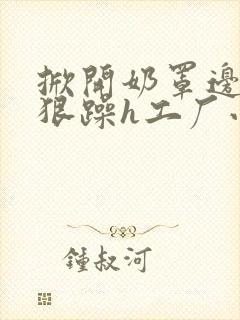 掀開奶罩邊
狠躁h工厂
鍾叔河